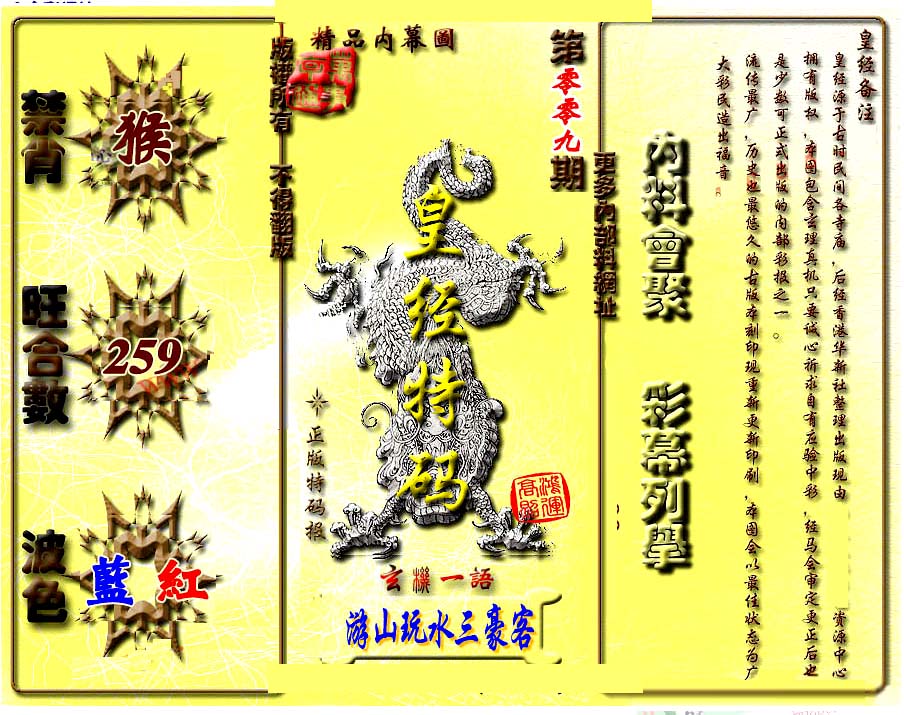 精品内幕圖
第零零九期
版權所有 不得翻版
更多内部料網址
皇经特码
正版特码报
鴻運高照
玄機一語
游山玩水三豪客
禁肖
猴
旺合數
259
波色
藍 紅
内料會聚 彩幕列舉
皇经备注
皇经源于古时民间各寺庙,后经香港华新社整理出版现由 资源中心
拥有版权,本图包含玄理真机只要诚心祈求自有应验中彩,经马会审定更正后也
是少数可正式出版的内部彩报之一。
流传最广,历史也最悠久的古版本刻印现重新更新印刷,本图会以最佳状态为广
大彩民造出福音